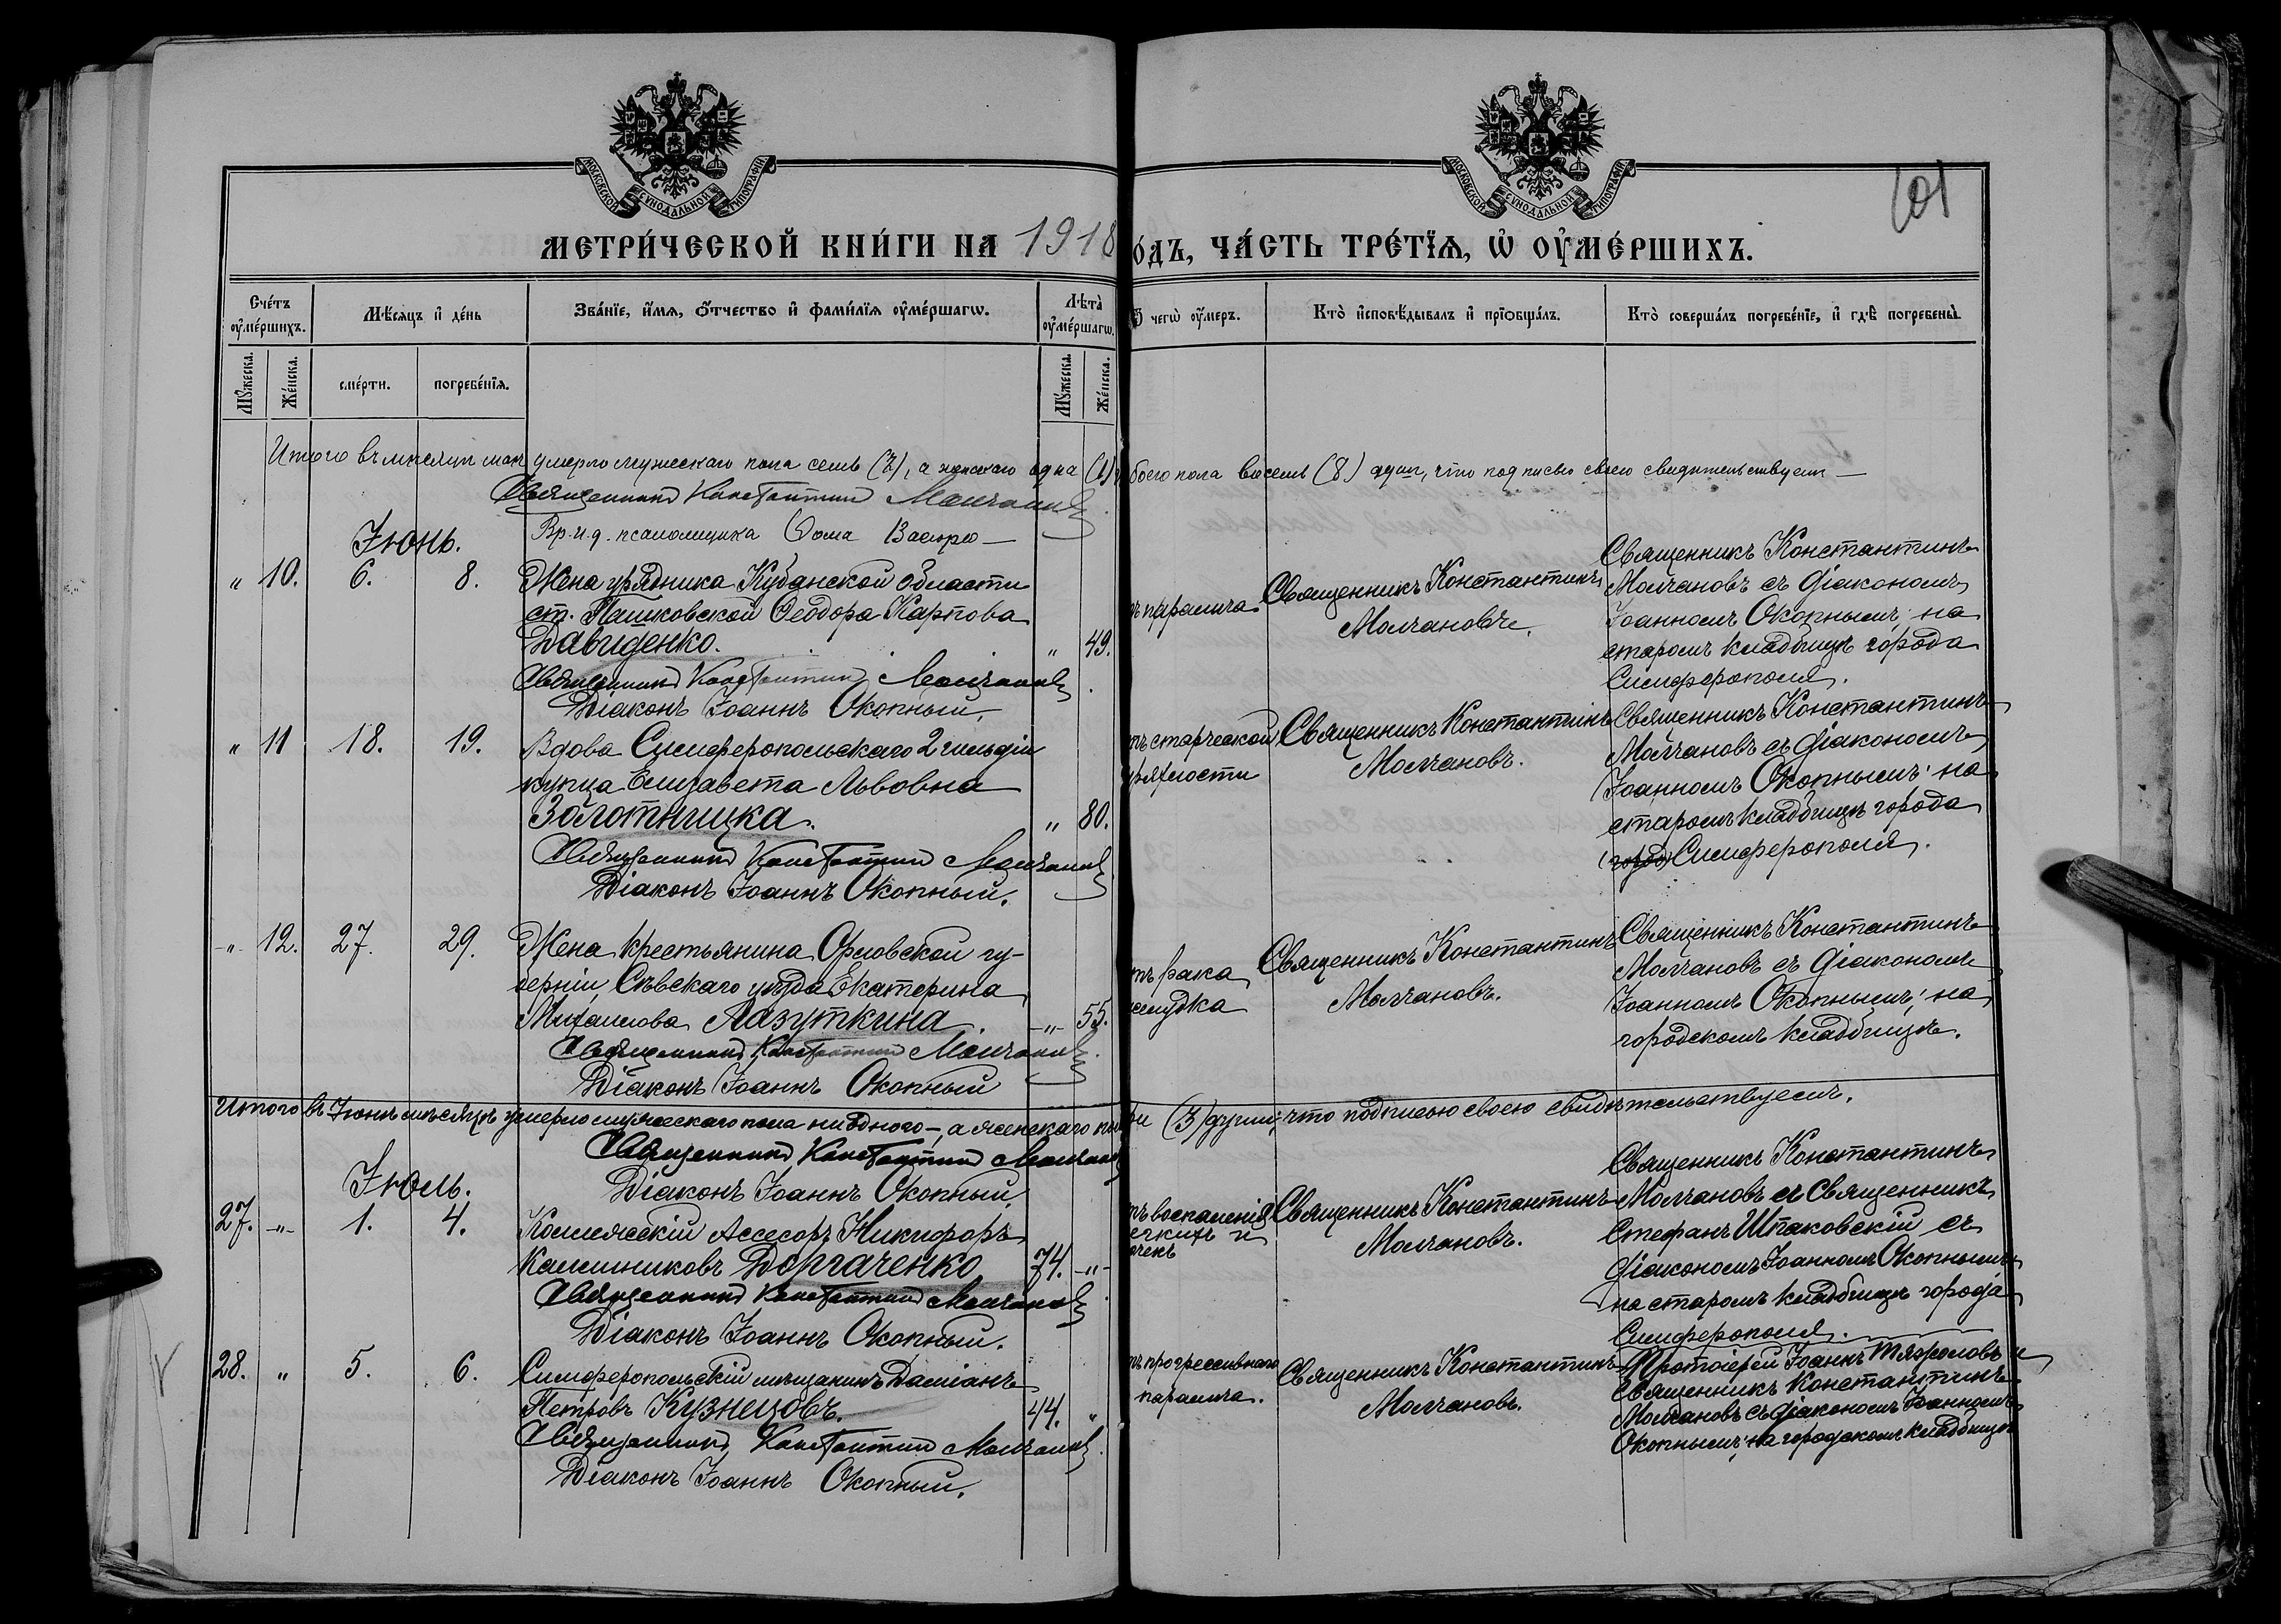 МОСКОВСКОЙ СѴНОДАЛЬНОЙ ТИПОГРАФІИ
МОСКОВСКОЙ СѴНОДАЛЬНОЙ ТИПОГРАФІИ
101
МЕТРИ́ЧЕСКОЙ КНИ́ГИ НА 1918
О́ДЪ, ЧА́СТЬ ТРЕ́ТЇѦ, Ѡ҆ ОУ҆МЕ́РШИХЪ.
Сче́тъ оу҆ме́ршихъ.
Мѣ́сяцъ и҆ де́нь
Зва́нїе, и҆́мѧ, ѻ҆́тчество и҆ фами́лїѧ оу҆ме́ршагѡ.
Лѣ́та оу҆ме́ршагѡ.
Ѿ чегѡ̀ оу҆́меръ.
Кто̀ и҆сповѣ́дывалъ и҆ прїѻбща́лъ.
Кто̀ соверша́лъ погребе́нїе, и҆ гдѣ̀ погребены̀.
Мꙋ́жеска.
Же́нска.
сме́рти.
погребе́нїѧ.
Мꙋ́жеска.
Же́нска.
Итого въ мѣсяцѣ маѣ умерло мужескаго пола семь (7), а женскаго одна (1)
боего пола восемь (8) душ, что подписью своею свидѣтельствуем —
Священникъ Константинъ Молчановъ
Вр. и. д. псаломщика Ѳома
Іюнь.
" 10. 6. 8. Жена урядника Кубанской области
ст. Пашковской Ѳеодора Карпова
Давиденко. " 49.
Священникъ Константинъ Молчановъ
Діаконъ Іоаннъ Окопный.
ъ паралича
Священникъ Константинъ
Молчановъ.
Священникъ Константинъ
Молчановъ съ діакономъ
Іоанномъ Окопнымъ; на
старомъ кладбищѣ города
Симферополя.
" 11 18. 19. Вдова Симферопольскаго 2 гильдіи
купца Елизавета Львовна
Золотницка. " 80.
Священникъ Константинъ Молчановъ
Діаконъ Іоаннъ Окопный.
тъ старческой
дряхлости
Священникъ Константинъ
Молчановъ.
Священникъ Константинъ
Молчановъ съ діакономъ
Іоанномъ Окопнымъ; на
старомъ кладбищѣ города
(город) Симферополя.
-"- 12. 27. 29. Жена крестьянина Орловской гу-
берніи, Сѣвскаго уѣзда Екатерина
Михаилова Лазуткина. -"- 55.
Священникъ Константинъ Молчановъ
Діаконъ Іоаннъ Окопный
тъ рака
желудка
Священникъ Константинъ
Молчановъ.
Священникъ Константинъ
Молчановъ съ діакономъ
Іоанномъ Окопнымъ; на
городскомъ кладбищѣ.
Итого въ Іюнѣ мѣсяцѣ умерло мужескаго пола ни одного —, а женскаго по
ри (3) души, что подписью своею свидѣтельствуемъ.
Священникъ Константинъ Молчановъ
Діаконъ Іоаннъ Окопный.
Іюль.
27. -"- 1. 4. Коллежскій Ассесоръ Никифоръ
Калинниковъ Доргаченко 74. -"-
Священникъ Константинъ Молчановъ
Діаконъ Іоаннъ Окопный.
тъ воспаленія
егкихъ и
очекъ
Священникъ Константинъ
Молчановъ.
Священникъ Константинъ
Молчановъ съ Священникъ
Стефанъ Шпаковскій съ
діакономъ Іоанномъ Окопнымъ
на старомъ кладбищѣ города
Симферополя.
28. " 5. 6. Симферопольскій мѣщанинъ Даміанъ
Петровъ Кузнецовъ. 44. "
Священникъ Константинъ Молчановъ
Діаконъ Іоаннъ Окопный.
тъ прогрессивнаго
паралича.
Священникъ Константинъ
Молчановъ.
Протоіерей Іоаннъ Тяжеловъ и
Священникъ Константинъ
Молчановъ съ діакономъ Іоанномъ
Окопнымъ; на городскомъ кладбищѣ